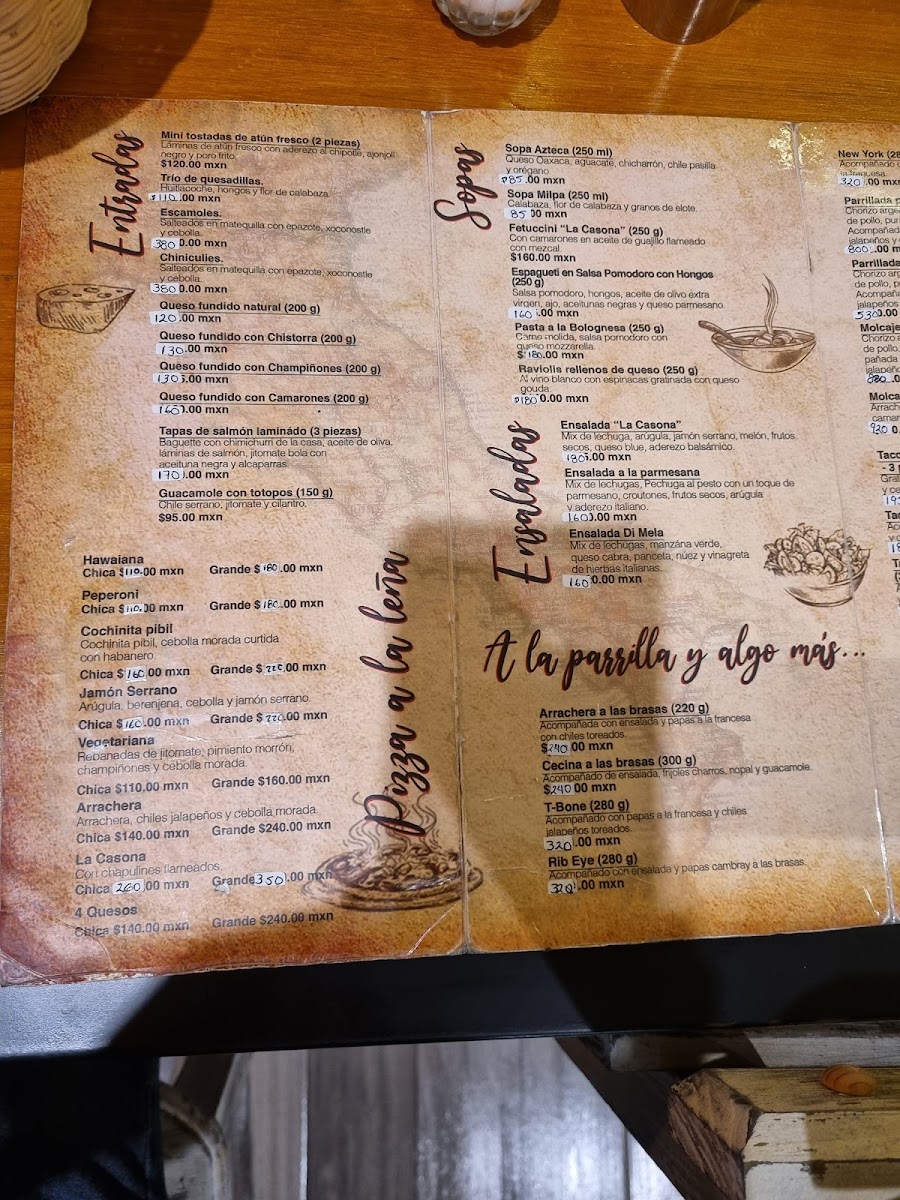 Entradas
Mini tostadas de atún fresco (2 piezas)
Láminas de atún fresco con aderezo al chipotle, ajonjolí
negro y poro frito.
$120.00 mxn
Trío de quesadillas.
Huitlacoche, hongos y flor de calabaza.
$110.00 mxn
Escamoles.
Salteados en matequilla con epazote, xoconostle
y cebolla.
380 0.00 mxn
Chiniculies.
Salteados en matequilla con epazote, xoconostle
y cebolla.
380 0.00 mxn
Queso fundido natural (200 g)
120.00 mxn
Queso fundido con Chistorra (200 g)
130.00 mxn
Queso fundido con Champiñones (200 g)
130.00 mxn
Queso fundido con Camarones (200 g)
160.00 mxn
Tapas de salmón laminádo (3 piezas)
Baguette con chimichurri de la casa, aceite de oliva,
láminas de salmón, jitomate bola con
aceituna negra y alcaparras.
170.00 mxn
Guacamole con totopos (150 g)
Chile serrano, jitomate y cilantro.
$95.00 mxn
Pizza a la leña
Hawaiana
Chica $110.00 mxn Grande $180.00 mxn
Peperoni
Chica $110.00 mxn Grande $180.00 mxn
Cochinita pibil
Cochinita pibil, cebolla morada curtida
con habanero.
Chica $160.00 mxn Grande $220.00 mxn
Jamón Serrano
Arúgula, berenjena, cebolla y jamón serrano.
Chica $160.00 mxn Grande $220.00 mxn
Vegetariana
Rebanadas de jitomate, pimiento morrón,
champiñones y cebolla morada.
Chica $110.00 mxn Grande $160.00 mxn
Arrachera
Arrachera, chiles jalapeños y cebolla morada.
Chica $140.00 mxn Grande $240.00 mxn
La Casona
Con chapulines flameados.
Chica 260.00 mxn Grande 350.00 mxn
4 Quesos
Chica $140.00 mxn Grande $240.00 mxn
Sopas
Sopa Azteca (250 ml)
Queso Oaxaca, aguacate, chicharrón, chile pasilla
y orégano.
$85.00 mxn
Sopa Milpa (250 ml)
Calabaza, flor de calabaza y granos de elote.
85 00 mxn
Fetuccini “La Casona” (250 g)
Con camarones en aceite de guajillo flameado
con mezcal.
$160.00 mxn
Espagueti en Salsa Pomodoro con Hongos
(250 g)
Salsa pomodoro, hongos, aceite de olivo extra
virgen, ajo, aceitunas negras y queso parmesano.
160.00 mxn
Pasta a la Bolognesa (250 g)
Carne molida, salsa pomodoro con
queso mozzarella.
$180.00 mxn
Raviolis rellenos de queso (250 g)
Al vino blanco con espinacas gratinada con queso
gouda.
$180 0.00 mxn
Ensaladas
Ensalada “La Casona”
Mix de lechuga, arúgula, jamón serrano, melón, frutos
secos, queso blue, aderezo balsámico.
180.00 mxn
Ensalada a la parmesana
Mix de lechugas, Pechuga al pesto con un toque de
parmesano, croutones, frutos secos, arúgula
y aderezo italiano.
160.00 mxn
Ensalada Di Mela
Mix de lechugas, manzana verde,
queso cabra, panceta, nuez y vinagreta
de hierbas italianas.
160 0.00 mxn
A la parrilla y algo más...
Arrachera a las brasas (220 g)
Acompañada con ensalada y papas a la francesa
con chiles toreados.
$240 00 mxn
Cecina a las brasas (300 g)
Acompañado de ensalada, frijoles charros, nopal y guacamole.
$240 00 mxn
T-Bone (280 g)
Acompañado con papas a la francesa y chiles
jalapeños toreados.
320.00 mxn
Rib Eye (280 g)
Acompañado con ensalada y papas cambray a las brasas.
320.00 mxn
New York (28
Acompañado
la francesa.
320.00 mxn
Parrillada p
Chorizo arge
de pollo, pu
Acompañad
jalapeños y
800.00 m
Parrillada
Chorizo ar
de pollo, p
Acompaña
jalapeños
530.00
Molcaje
Chorizo
de pollo
pañada
jalapeño
880.0
Molca
Arrach
camar
920 0
Taco
- 3
y ce